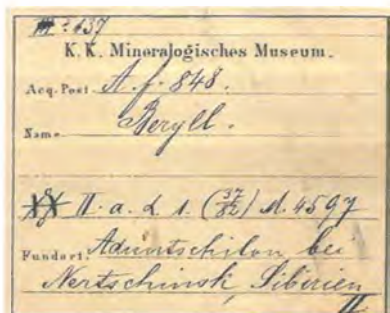 437
K. K. Mineralogisches Museum.
Acq. Post A. f. 848.
Name Beryll.
II. a. d. 1. (37/82) d. 4597
Fundort: Aduntschilon bei
Nertschinsk, Sibirien